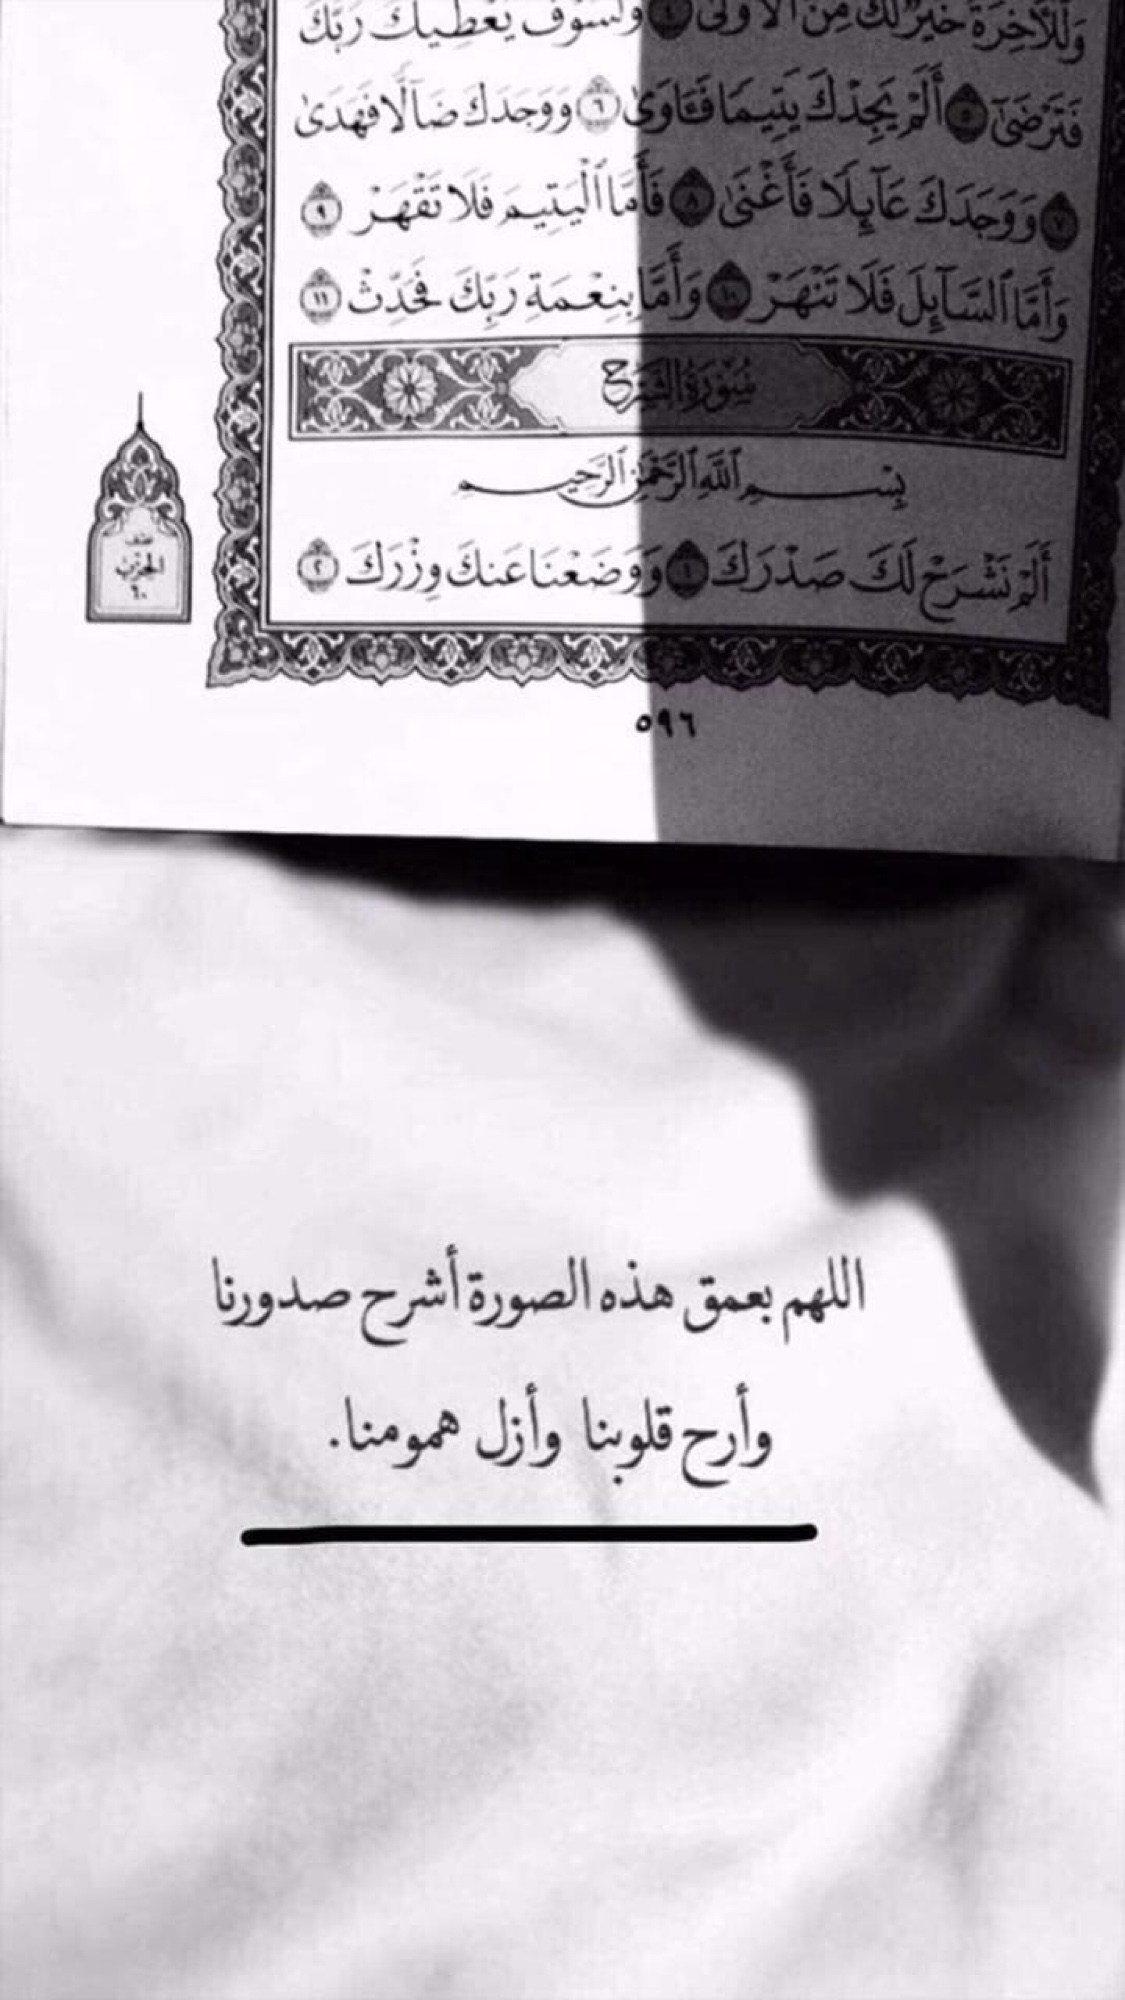 وَلَلْآخِرَةُ خَيْرٌ لَّكَ مِنَ ٱلْأُولَىٰ ٤ وَلَسَوْفَ يُعْطِيكَ رَبُّكَ
فَتَرْضَىٰٓ ٥ أَلَمْ يَجِدْكَ يَتِيمًا فَـَٔاوَىٰ ٦ وَوَجَدَكَ ضَآلًّا فَهَدَىٰ
٧ وَوَجَدَكَ عَآئِلًا فَأَغْنَىٰ ٨ فَأَمَّا ٱلْيَتِيمَ فَلَا تَقْهَرْ ٩
وَأَمَّا ٱلسَّآئِلَ فَلَا تَنْهَرْ ١٠ وَأَمَّا بِنِعْمَةِ رَبِّكَ فَحَدِّثْ ١١
سُورَةُ الشَّرْحِ
بِسْمِ ٱللَّهِ ٱلرَّحْمَٰنِ ٱلرَّحِيمِ
أَلَمْ نَشْرَحْ لَكَ صَدْرَكَ ١ وَوَضَعْنَا عَنكَ وِزْرَكَ ٢
نصف
الحزب
٦٠
٥٩٦
اللهم بعمق هذه الصورة أشرح صدورنا
وأرح قلوبنا وأزل همومنا.